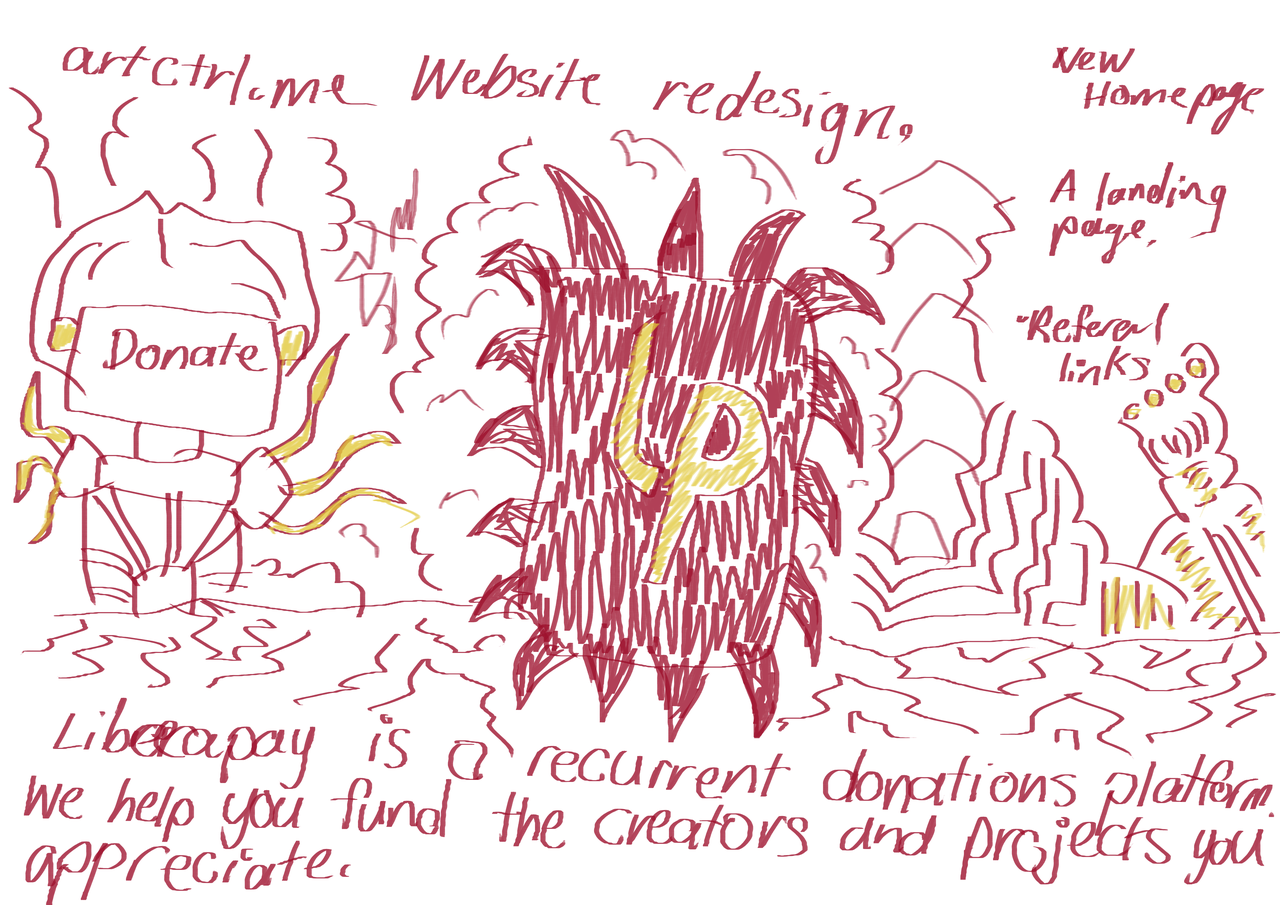 artctrl.me Website redesign.
New
Homepage
A landing
page.
Referal
links
Donate
lp
Liberapay is a recurrent donations platform.
We help you fund the creators and projects you
appreciate.